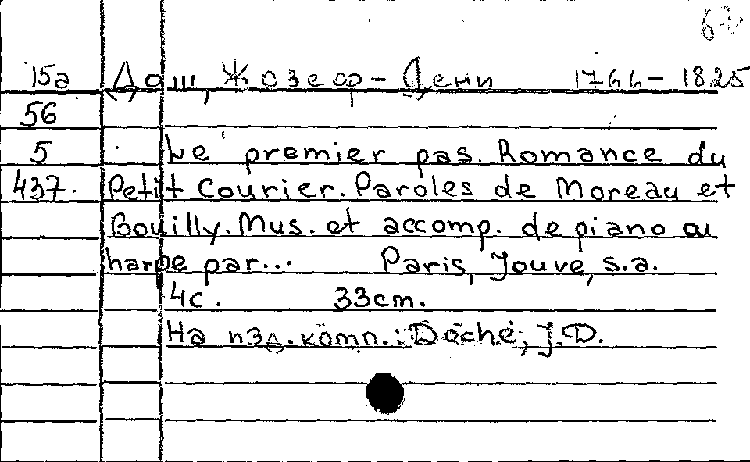 15а Дош, Жозеф-Дени 1766-1825
56
5 Le premier pas. Romance du
437. Petit Courier. Paroles de Moreau et
Bouilly. Mus. et accomp. de piano ou
harpe par... Paris, Jouve, s.a.
4с. 33cm.
На изд. комп.: Doche, J.D.